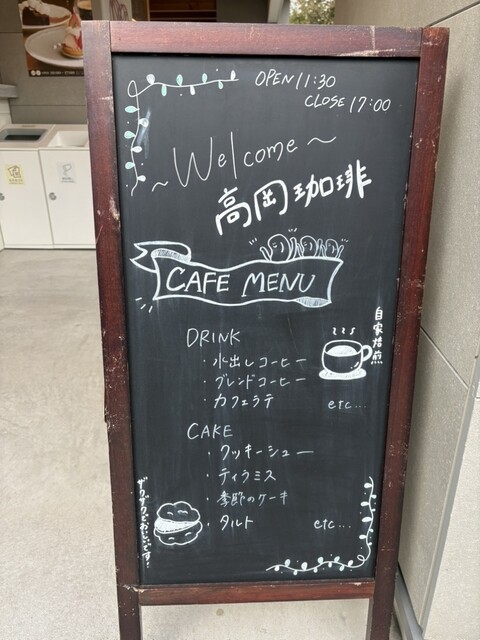 OPEN 11:30
CLOSE 17:00
~ Welcome ~
高岡珈琲
CAFE MENU
自家焙煎
DRINK
・水出しコーヒー
・ブレンドコーヒー
・カフェラテ
etc...
CAKE
・クッキーシュー
・ティラミス
・季節のケーキ
・タルト
etc...
ザクザクでおいしいです!